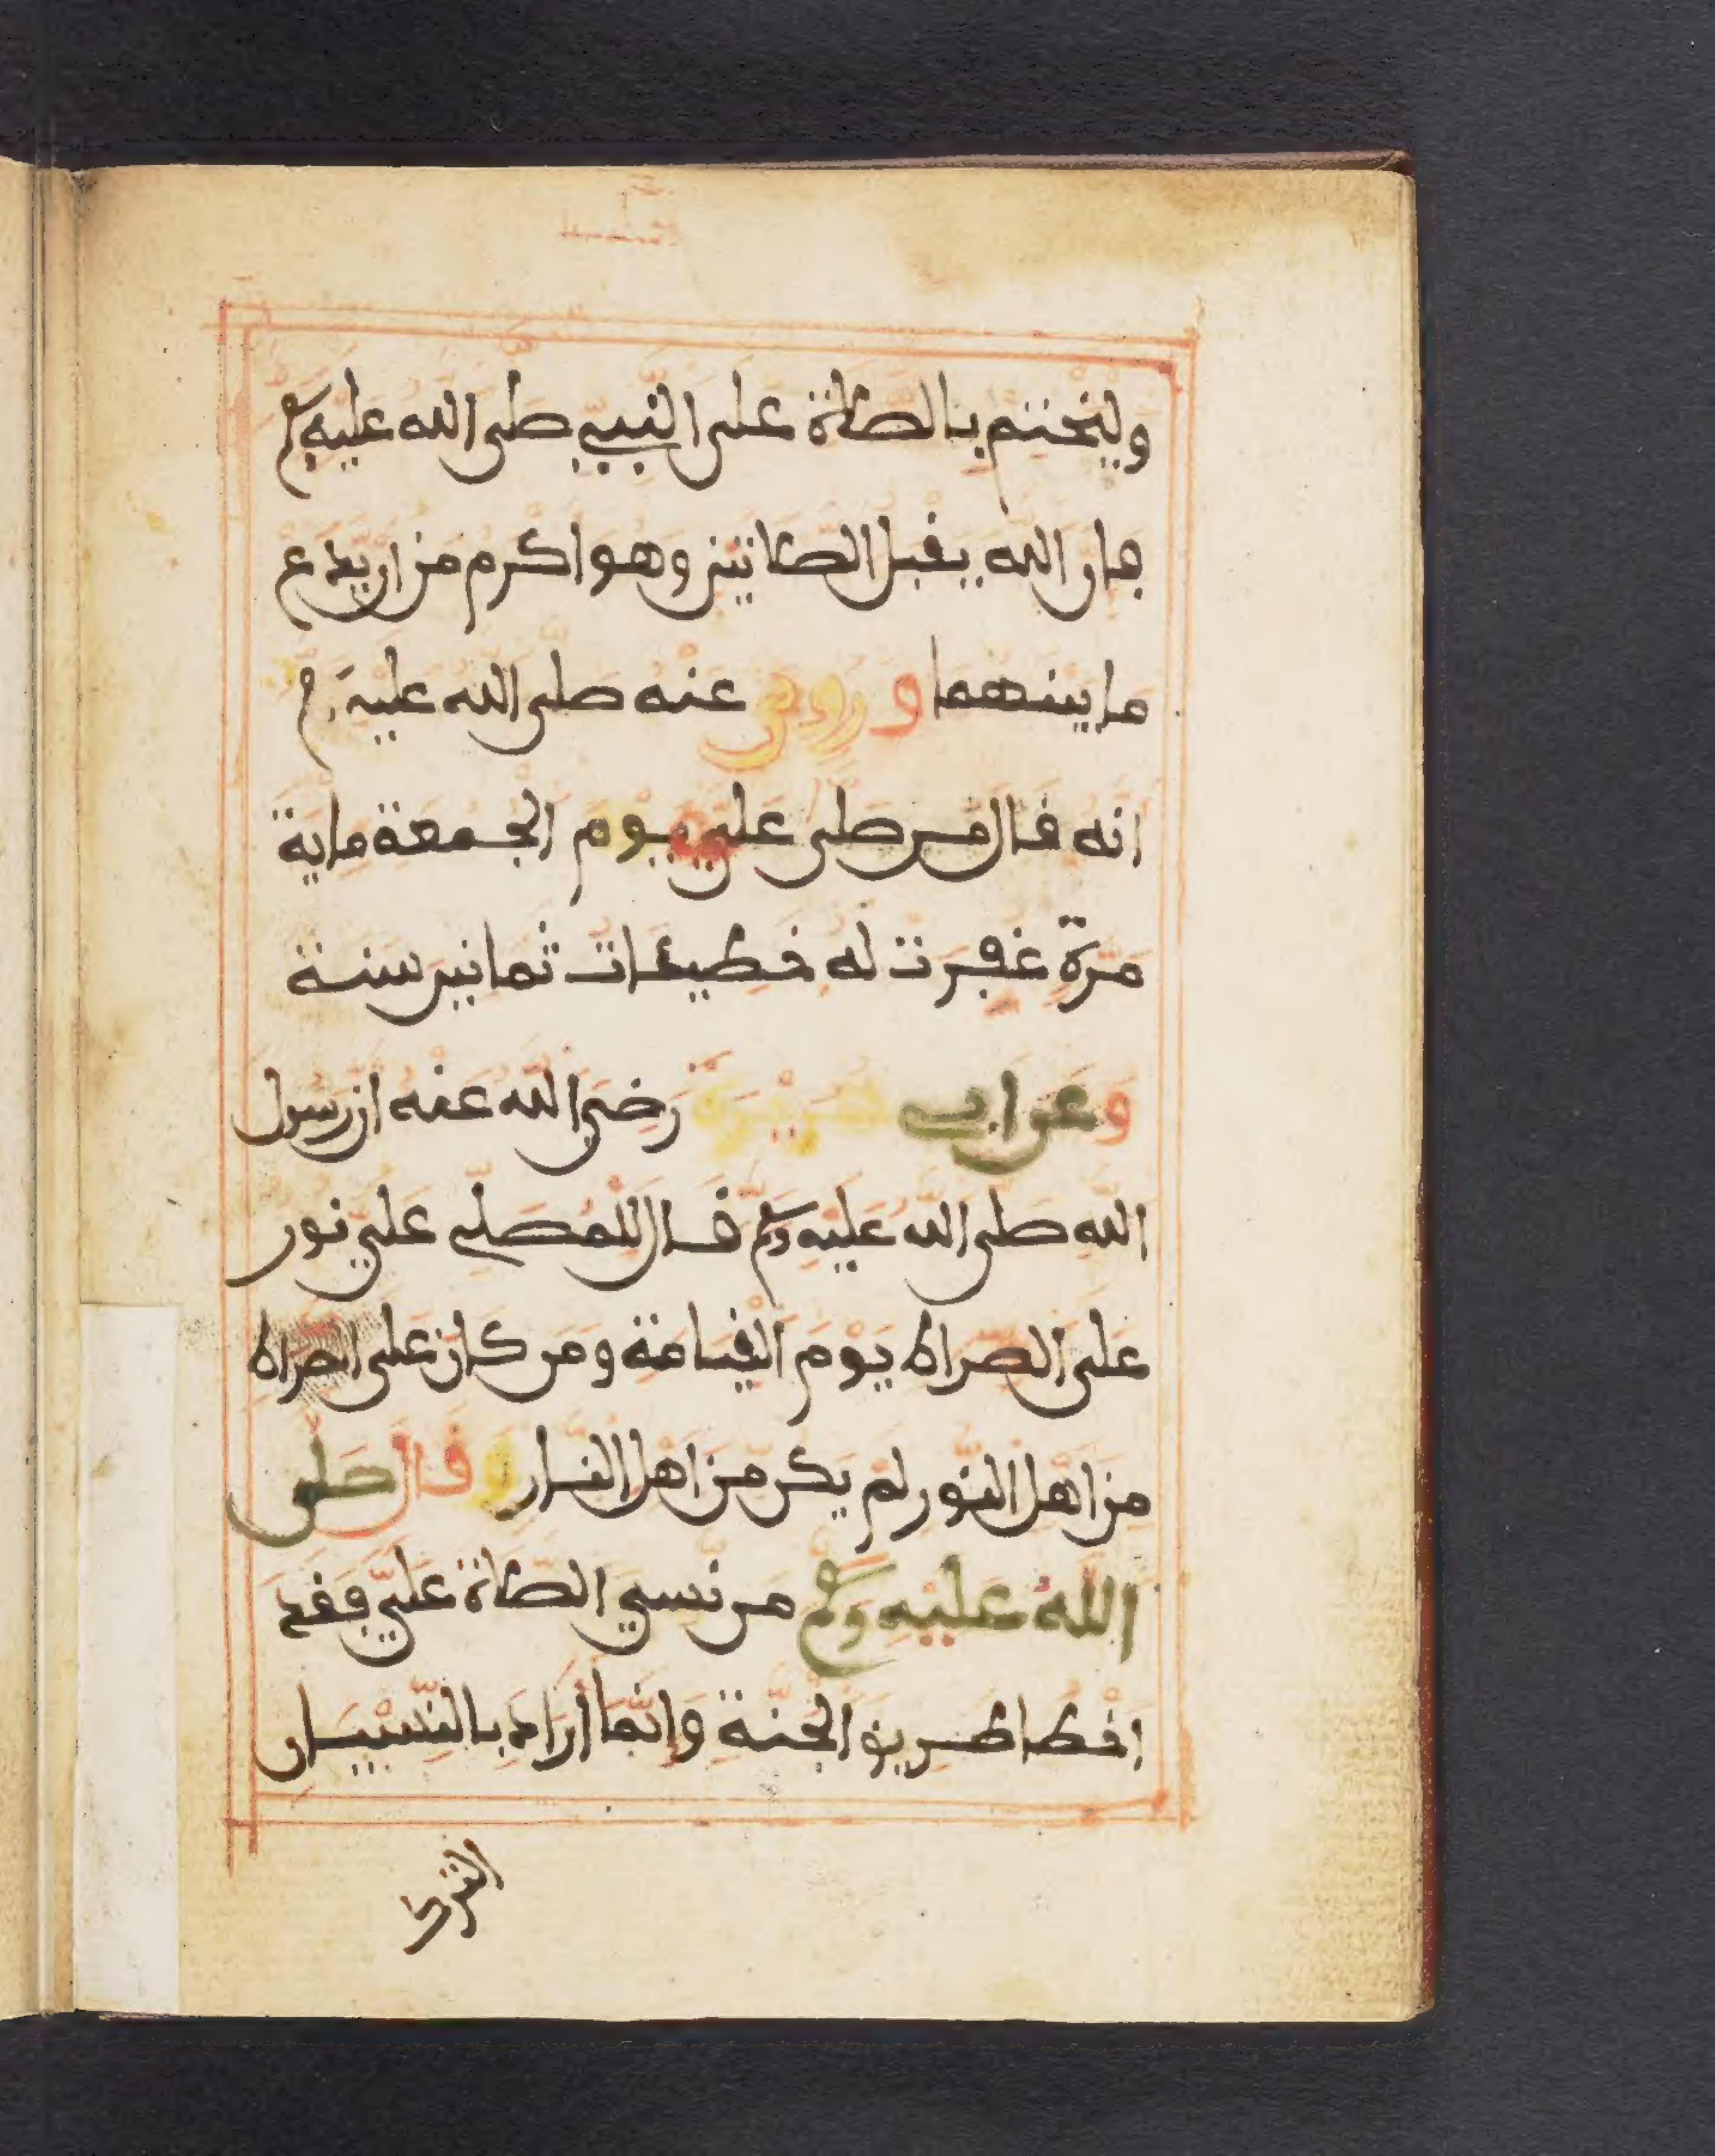 وليختم بالصلاة على النبيء صلى الله عليه وسلم
فإن الله يقبل الصلاتين وهو أكرم من ان يدع
ما بينهما وروي عنه صلى الله عليه وسلم
انه قال من صلى علي يوم الجمعة ماية
مرة غفرت له خطيئات ثمانين سنة
وعن ابي هريرة رضي الله عنه ان رسول
الله صلى الله عليه وسلم قال للمصلي علي نور
على الصراط يوم القيامة ومن كان على الصراط
من اهل النور لم يكن من اهل النار وقال صلى
الله عليه وسلم من نسي الصلاة علي فقد
اخطا طريق الجنة وانما أراد بالنسيان
الترك